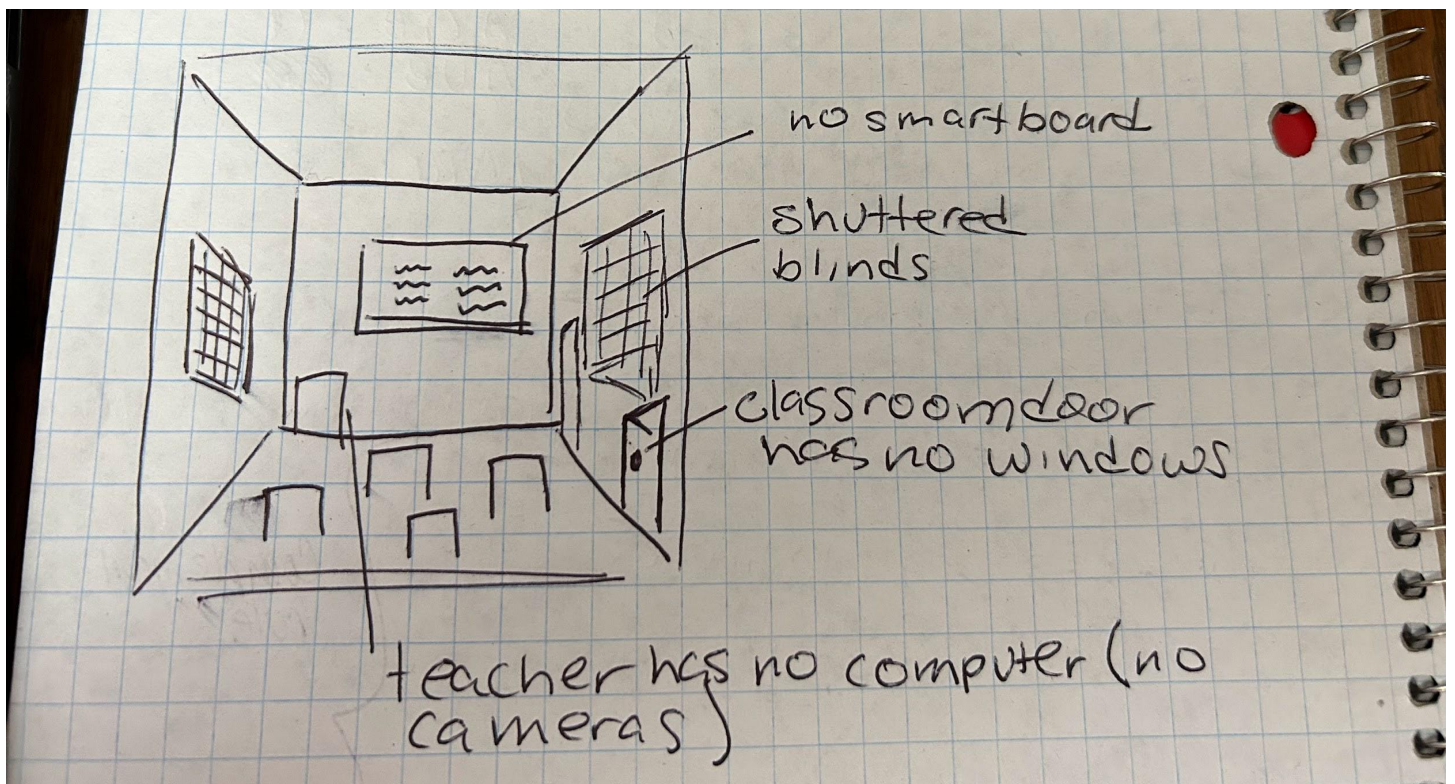 no smartboard
shuttered
blinds
classroom door
has no windows
teacher has no computer (no
cameras)